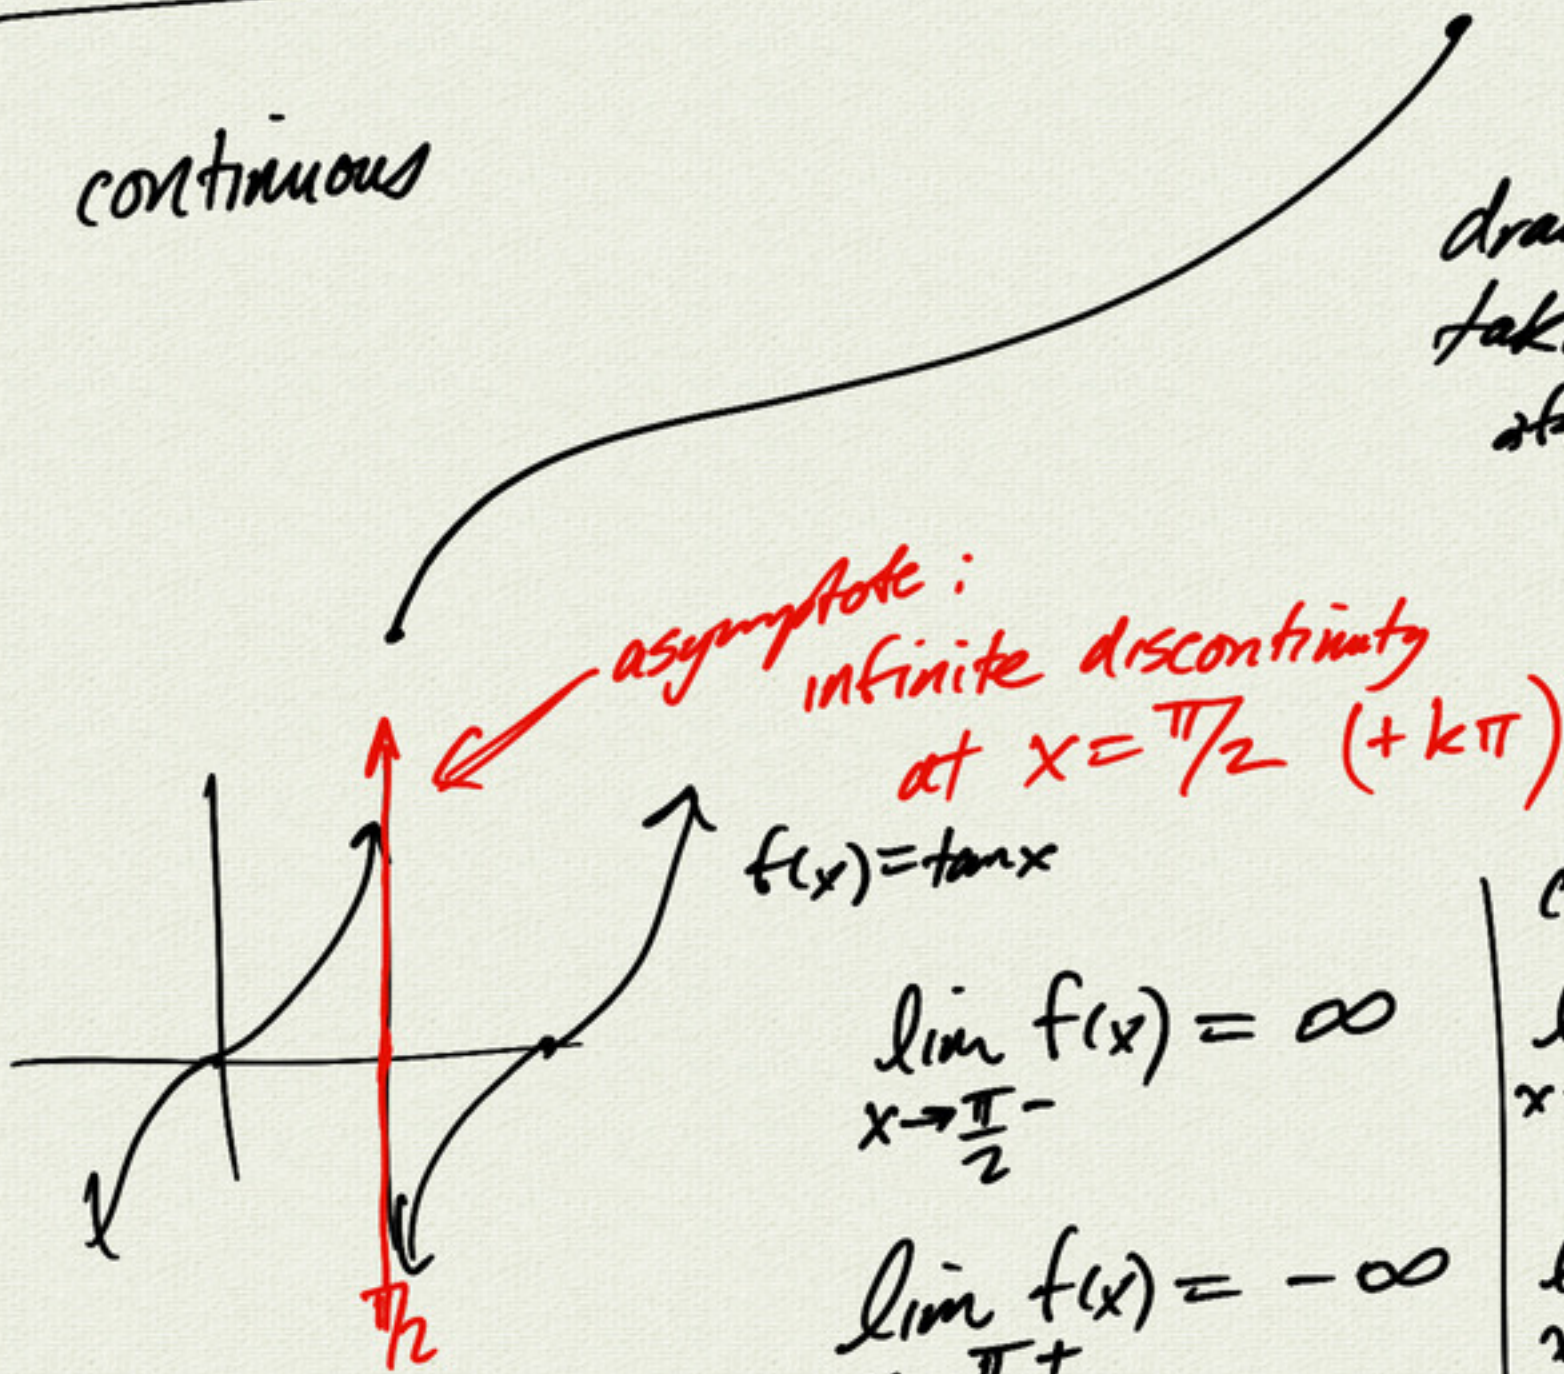 continuous
asymptote:
infinite discontinuity
at x = π/2 (+kπ)
f(x) = tan x
lim f(x) = ∞
x→π/2 -
lim f(x) = -∞
π +
π/2